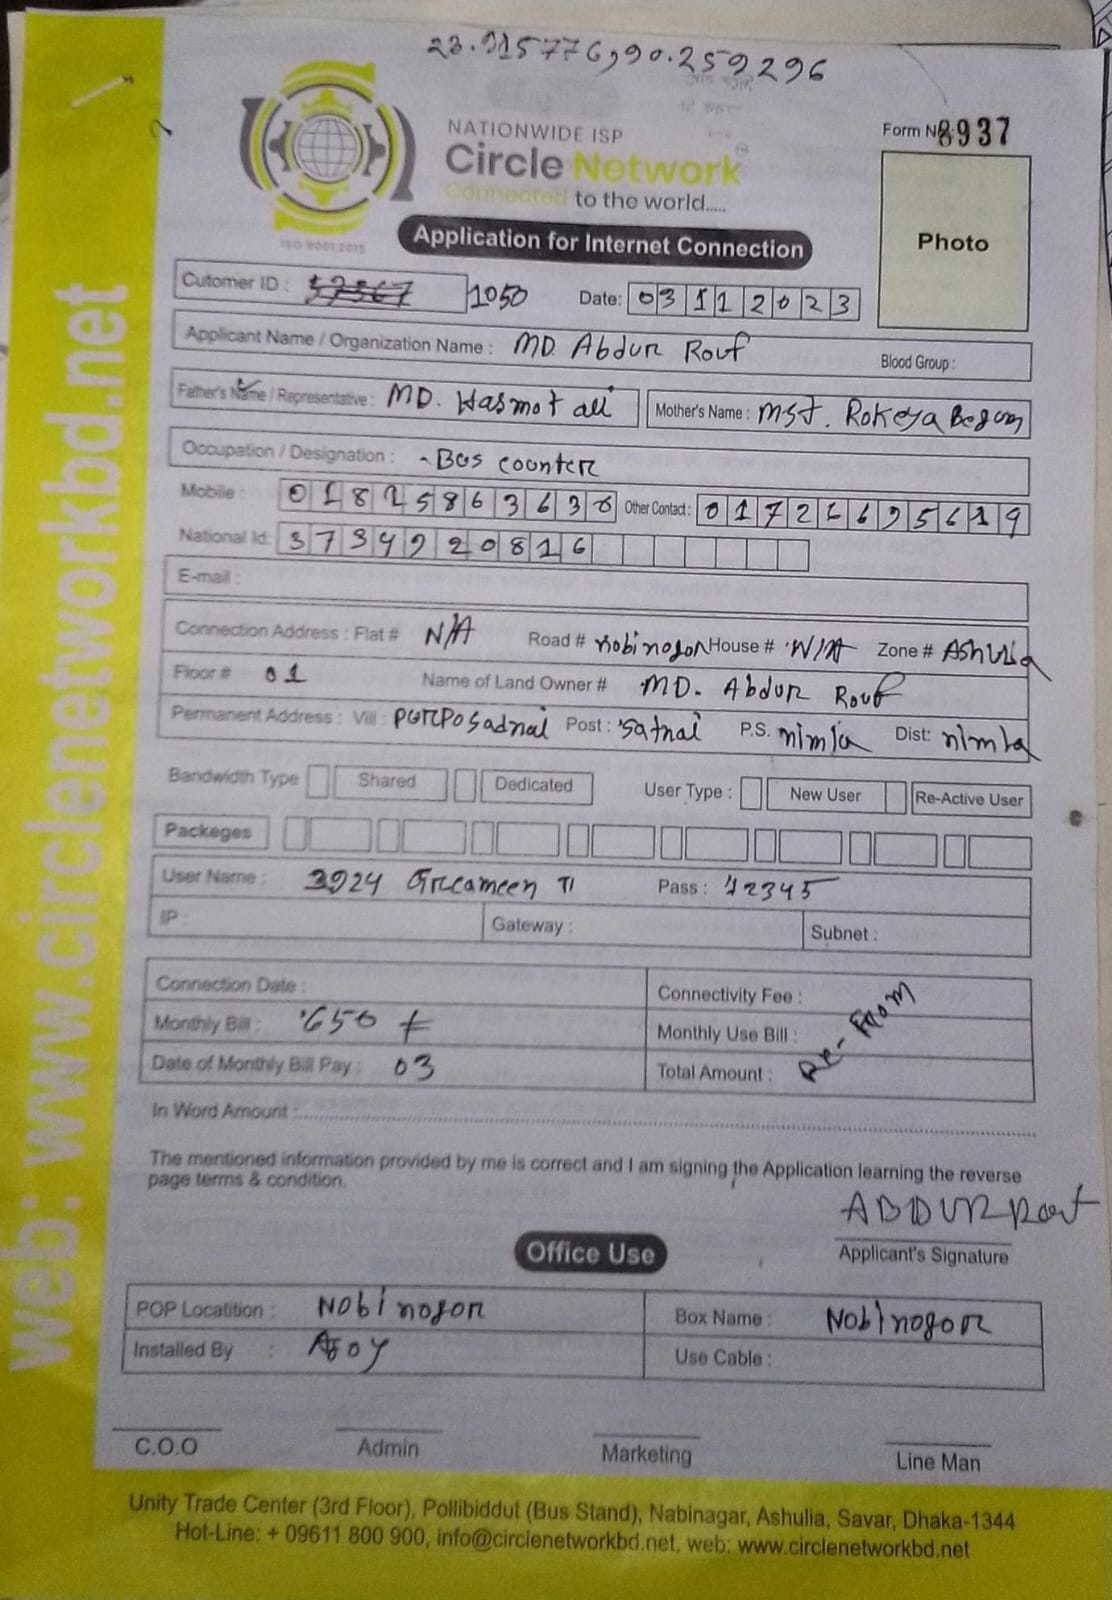 23.915776,90.259296
NATIONWIDE ISP
Circle Network
Connected to the world.....
ISO 9001:2015
Form N 8937
Photo
Application for Internet Connection
Cutomer ID : 1050 Date: 03112023
Applicant Name / Organization Name : MD. Abdur Rouf Blood Group :
Father's Name / Representative : MD. Hasmot ali Mother's Name : MST. Rokeya Begum
Occupation / Designation : Bus counter
Mobile : 01825863636 Other Contact : 01726695619
National Id: 3734920816
E-mail :
Connection Address : Flat # N/A Road # Nobinogor House # N/A Zone # Ashulia
Floor # 01 Name of Land Owner # MD. Abdur Rouf
Permanent Address : Vill : Post : P.S. Dist:
Bandwidth Type Shared Dedicated User Type : New User Re-Active User
Packeges
User Name : 3924 Grameen Pass : 12345
IP : Gateway : Subnet :
Connection Date : Connectivity Fee :
Monthly Bill : 650 Monthly Use Bill :
Date of Monthly Bill Pay : 03 Total Amount :
Re-From
In Word Amount :
The mentioned information provided by me is correct and I am signing the Application learning the reverse
page terms & condition.
ABDUR Rouf
Applicant's Signature
Office Use
POP Locatition : Nobinogor Box Name : Nobinogor
Installed By : Use Cable :
C.O.O Admin Marketing Line Man
Unity Trade Center (3rd Floor), Pollibiddut (Bus Stand), Nabinagar, Ashulia, Savar, Dhaka-1344
Hot-Line: + 09611 800 900, info@circlenetworkbd.net, web: www.circlenetworkbd.net
web: www.circlenetworkbd.net